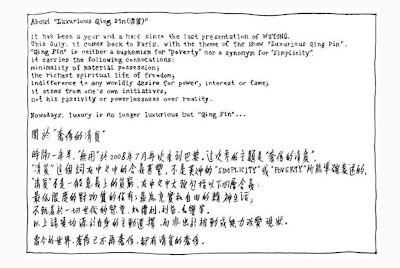 About "Luxurious Qing Pin(清貧)"
It has been a year and a half since the last presentation of WUYONG.
This July, it comes back to Paris, with the theme of the show "Luxurious Qing Pin".
"Qing Pin" is neither a euphemism for "Poverty" nor a synonym for "Simplicity"
it carries the following connotations:
minimality of material possession;
the richest spiritual life of freedom;
indifference to any worldly desire for power, interest or fame;
it stems from one's own initiatives,
not his passivity or powerlessness over reality.
Nowadays, luxury is no longer luxurious but "Qing Pin"...
關於"奢侈的清貧"
時隔一年半,"無用"於2008年7月再次來到巴黎,這次發佈主題是"奢侈的清貧"。
"清貧"這個詞在中文中的含義,不是英語的"SIMPLICITY"或"POVERTY"所能準確表達的。
"清貧"不是一般意義上的貧窮,在中文中大致包括以下四層含義:
最低限度的對物質的佔有;最為充實和自由的精神生活;
不執著於一切世俗的慾望,如權利、利益、名譽等。
以上諸項均源於自身的主動選擇,而非出於被動或無力改變現狀。
當今的世界,奢侈已不再奢侈,卻有清貧的奢侈。